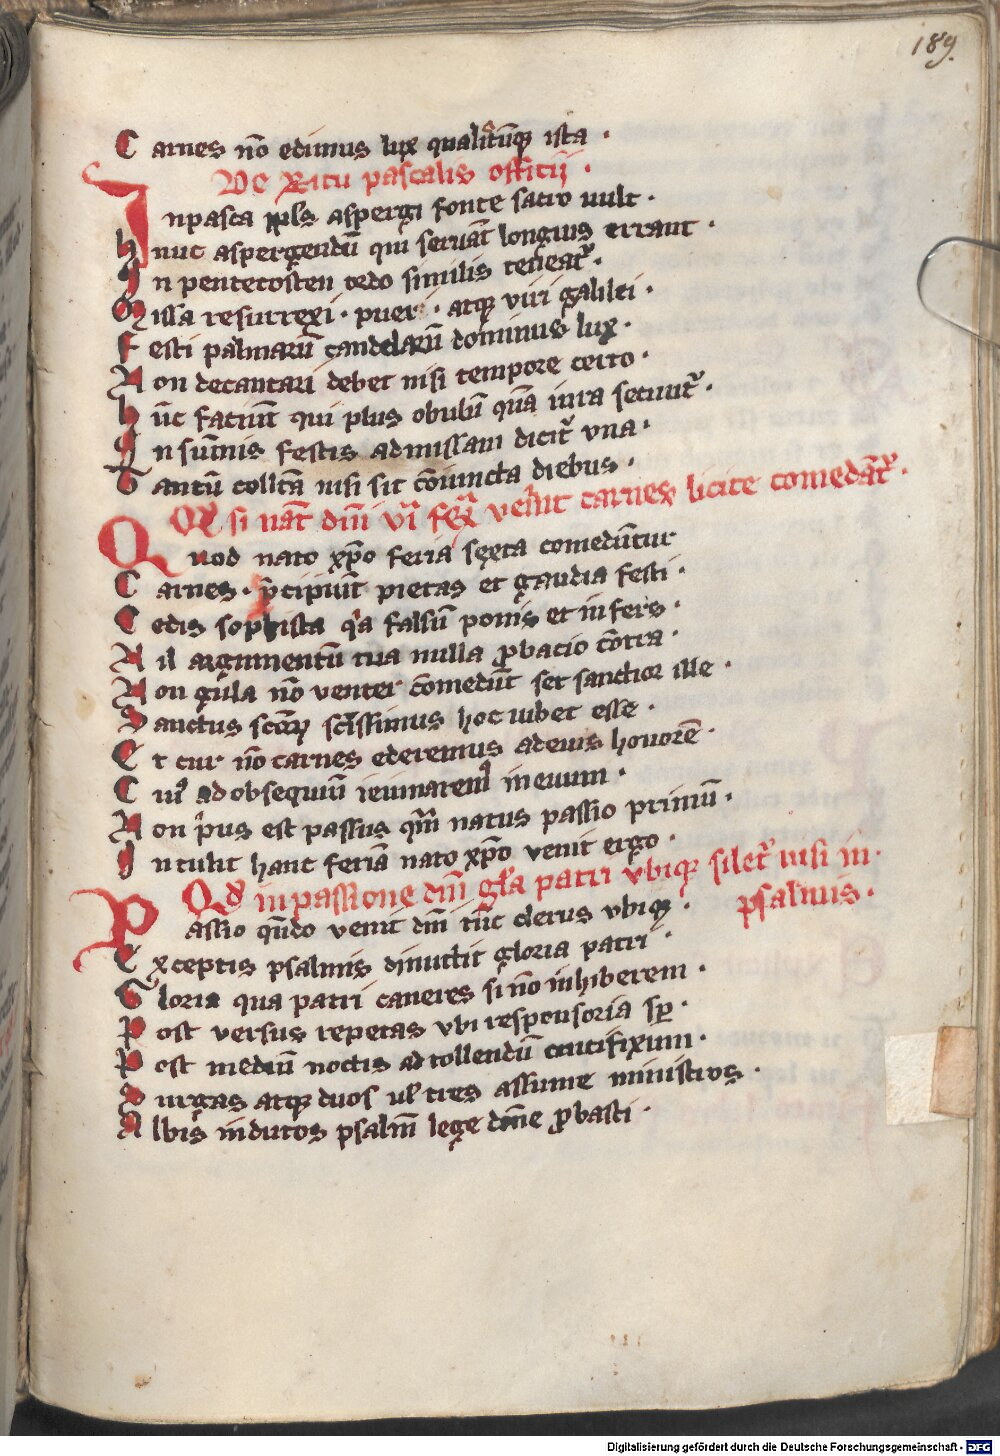 189.
Carnes nō edimus lux qualitūq ista ·
De Ritu pascalis officii ·
Inpasca aspergi fonte sacro uult ·
hunc aspergendū qui seruāt longius errant ·
In pentecosten credo similis teneat᷑ ·
Missa resurrexi · pueri · atq viri galilei ·
Festi palmarū candelarū dominus lux ·
Non decantari debet nisi tempore certo ·
hūc faciūt qui plus obulū quā iura secunt᷑ ·
In sūmis festis ad missam dicit᷑ vna ·
Tantū collcā nisi sit cōiuncta diebus ·
Qd si nāt dīn vī fex venit carnes licite comedāt᷑ ·
Quod nato xp̄o feria sexta comedūtur
Carnes · p̄cipiūt pietas et gaudia festi ·
Cedis sophista qia falsū ponis et infers ·
Nil argumentū tua nulla ꝓbacio cōtra ·
Non gula nō venter cōmedūt set sanctior ille ·
Sanctus sctōꝝ sctīssimus hoc iubet esse ·
Et cur nō carnes ederemus ad eius honorē ·
Cui᷒ ad obsequiū ieiunarem᷒ in euum ·
Non p̓us est passus qm̄ natus passio primū ·
Intulit hanc feriā nato xp̄o venit ergo ·
Qd in passione dīn gl̄a patri vbiqꝫ silet᷑ nisi in ·
psalmis ·
Passio qn̄do venit dīn tūc clerus vbiqꝫ ·
Exceptis psalmis dimittit gloria patri ·
Gloria qua patri caneres si nō inhiberem ·
Post versus repetas vbi responsoria sp̄ ·
Post mediū noctis ad tollendū crucifixum ·
Surgas atqꝫ duos ul̄ tres assume ministros ·
Albis indutos psalm̄ lege dn̄e ꝓbasti ·
Digitalisierung gefördert durch die Deutsche Forschungsgemeinschaft - DFG